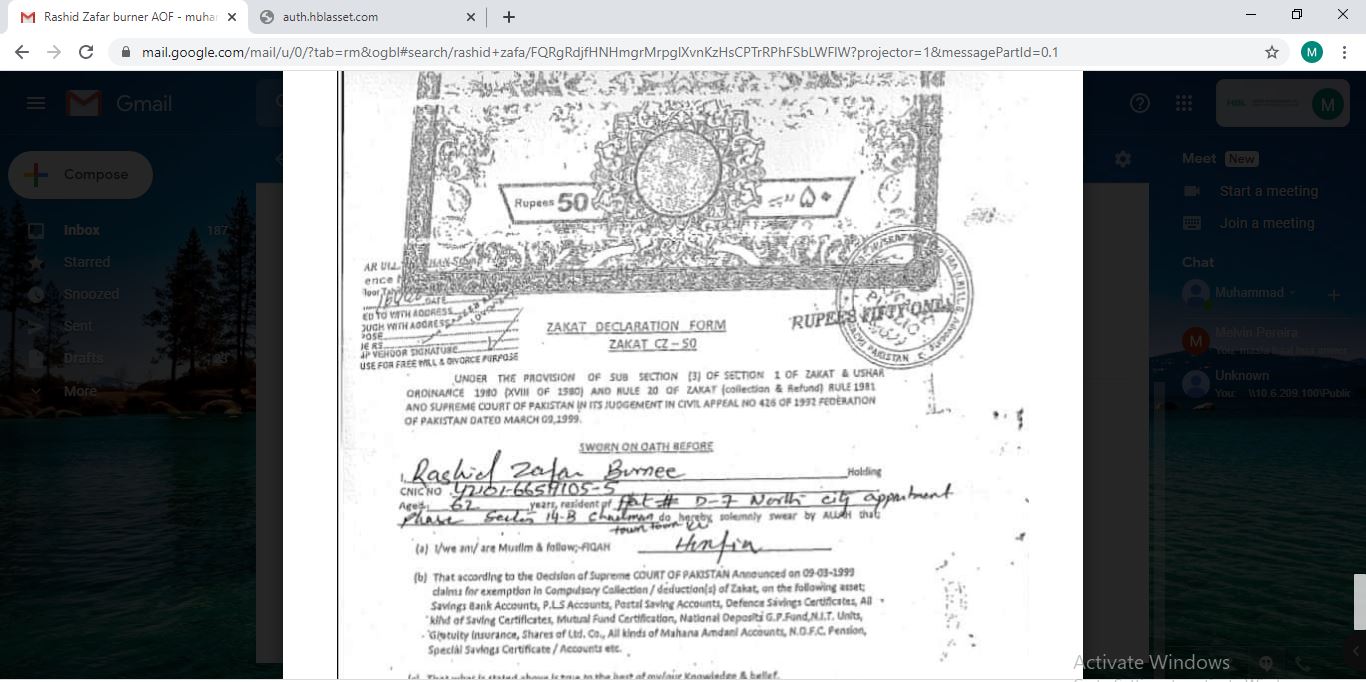 Rashid Zafar burner AOF - muhar
auth.hblasset.com
mail.google.com/mail/u/0/?tab=rm&ogbl#search/rashid+zafa/FQRgRdjfHNHmgrMrpglXvnKzHsCPTrRPhFSbLWFlW?projector=1&messagePartId=0.1
M
Gmail
HBL
M
Compose
Inbox 187
Starred
Snoozed
Sent
Drafts
More
Meet New
Start a meeting
Join a meeting
Chat
Muhammad
M Melvin Pereira
You:
Unknown
You: \\10.6.209.100\Public
Rupees 50
AR ULL
DATE
ED TO WITH ADDRESS
OUGH WITH ADDRESS
POSE
VENDOR SIGNATURE
USE FOR FREE WILL & DIVORCE PURPOSE
RUPEES FIFTY ONLY
PAKISTAN
ZAKAT DECLARATION FORM
ZAKAT CZ – 50
UNDER THE PROVISION OF SUB SECTION (3) OF SECTION 1 OF ZAKAT & USHAR
ORDINANCE 1980 (XVIII OF 1980) AND RULE 20 OF ZAKAT (collection & Refund) RULE 1981
AND SUPREME COURT OF PAKISTAN IN ITS JUDGEMENT IN CIVIL APPEAL NO 426 OF 1992 FEDERATION
OF PAKISTAN DATED MARCH 09,1999.
SWORN ON OATH BEFORE
I, Rashid Zafar Burnee Holding
CNIC NO
Aged: 62 years, resident of Flat # D-7 North city appartment
Phase Sector 14-B do hereby solemnly swear by ALLAH that;
town
(a) I/we am/ are Muslim & follow;-FIQAH
(b) That according to the Decision of Supreme COURT OF PAKISTAN Announced on 09-03-1999
claims for exemption in Compulsory Collection / deduction(s) of Zakat, on the following asset;
Savings Bank Accounts, P.L.S Accounts, Postal Saving Accounts, Defence Savings Certificates, All
kind of Saving Certificates, Mutual Fund Certification, National Deposits G.P.Fund,N.I.T. Units,
Gratuity Insurance, Shares of Ltd. Co., All kinds of Mahana Amdani Accounts, N.D.F.C, Pension,
Special Savings Certificate / Accounts etc.
That what is stated above is true to the best of my/our Knowledge & belief.
Activate Windows